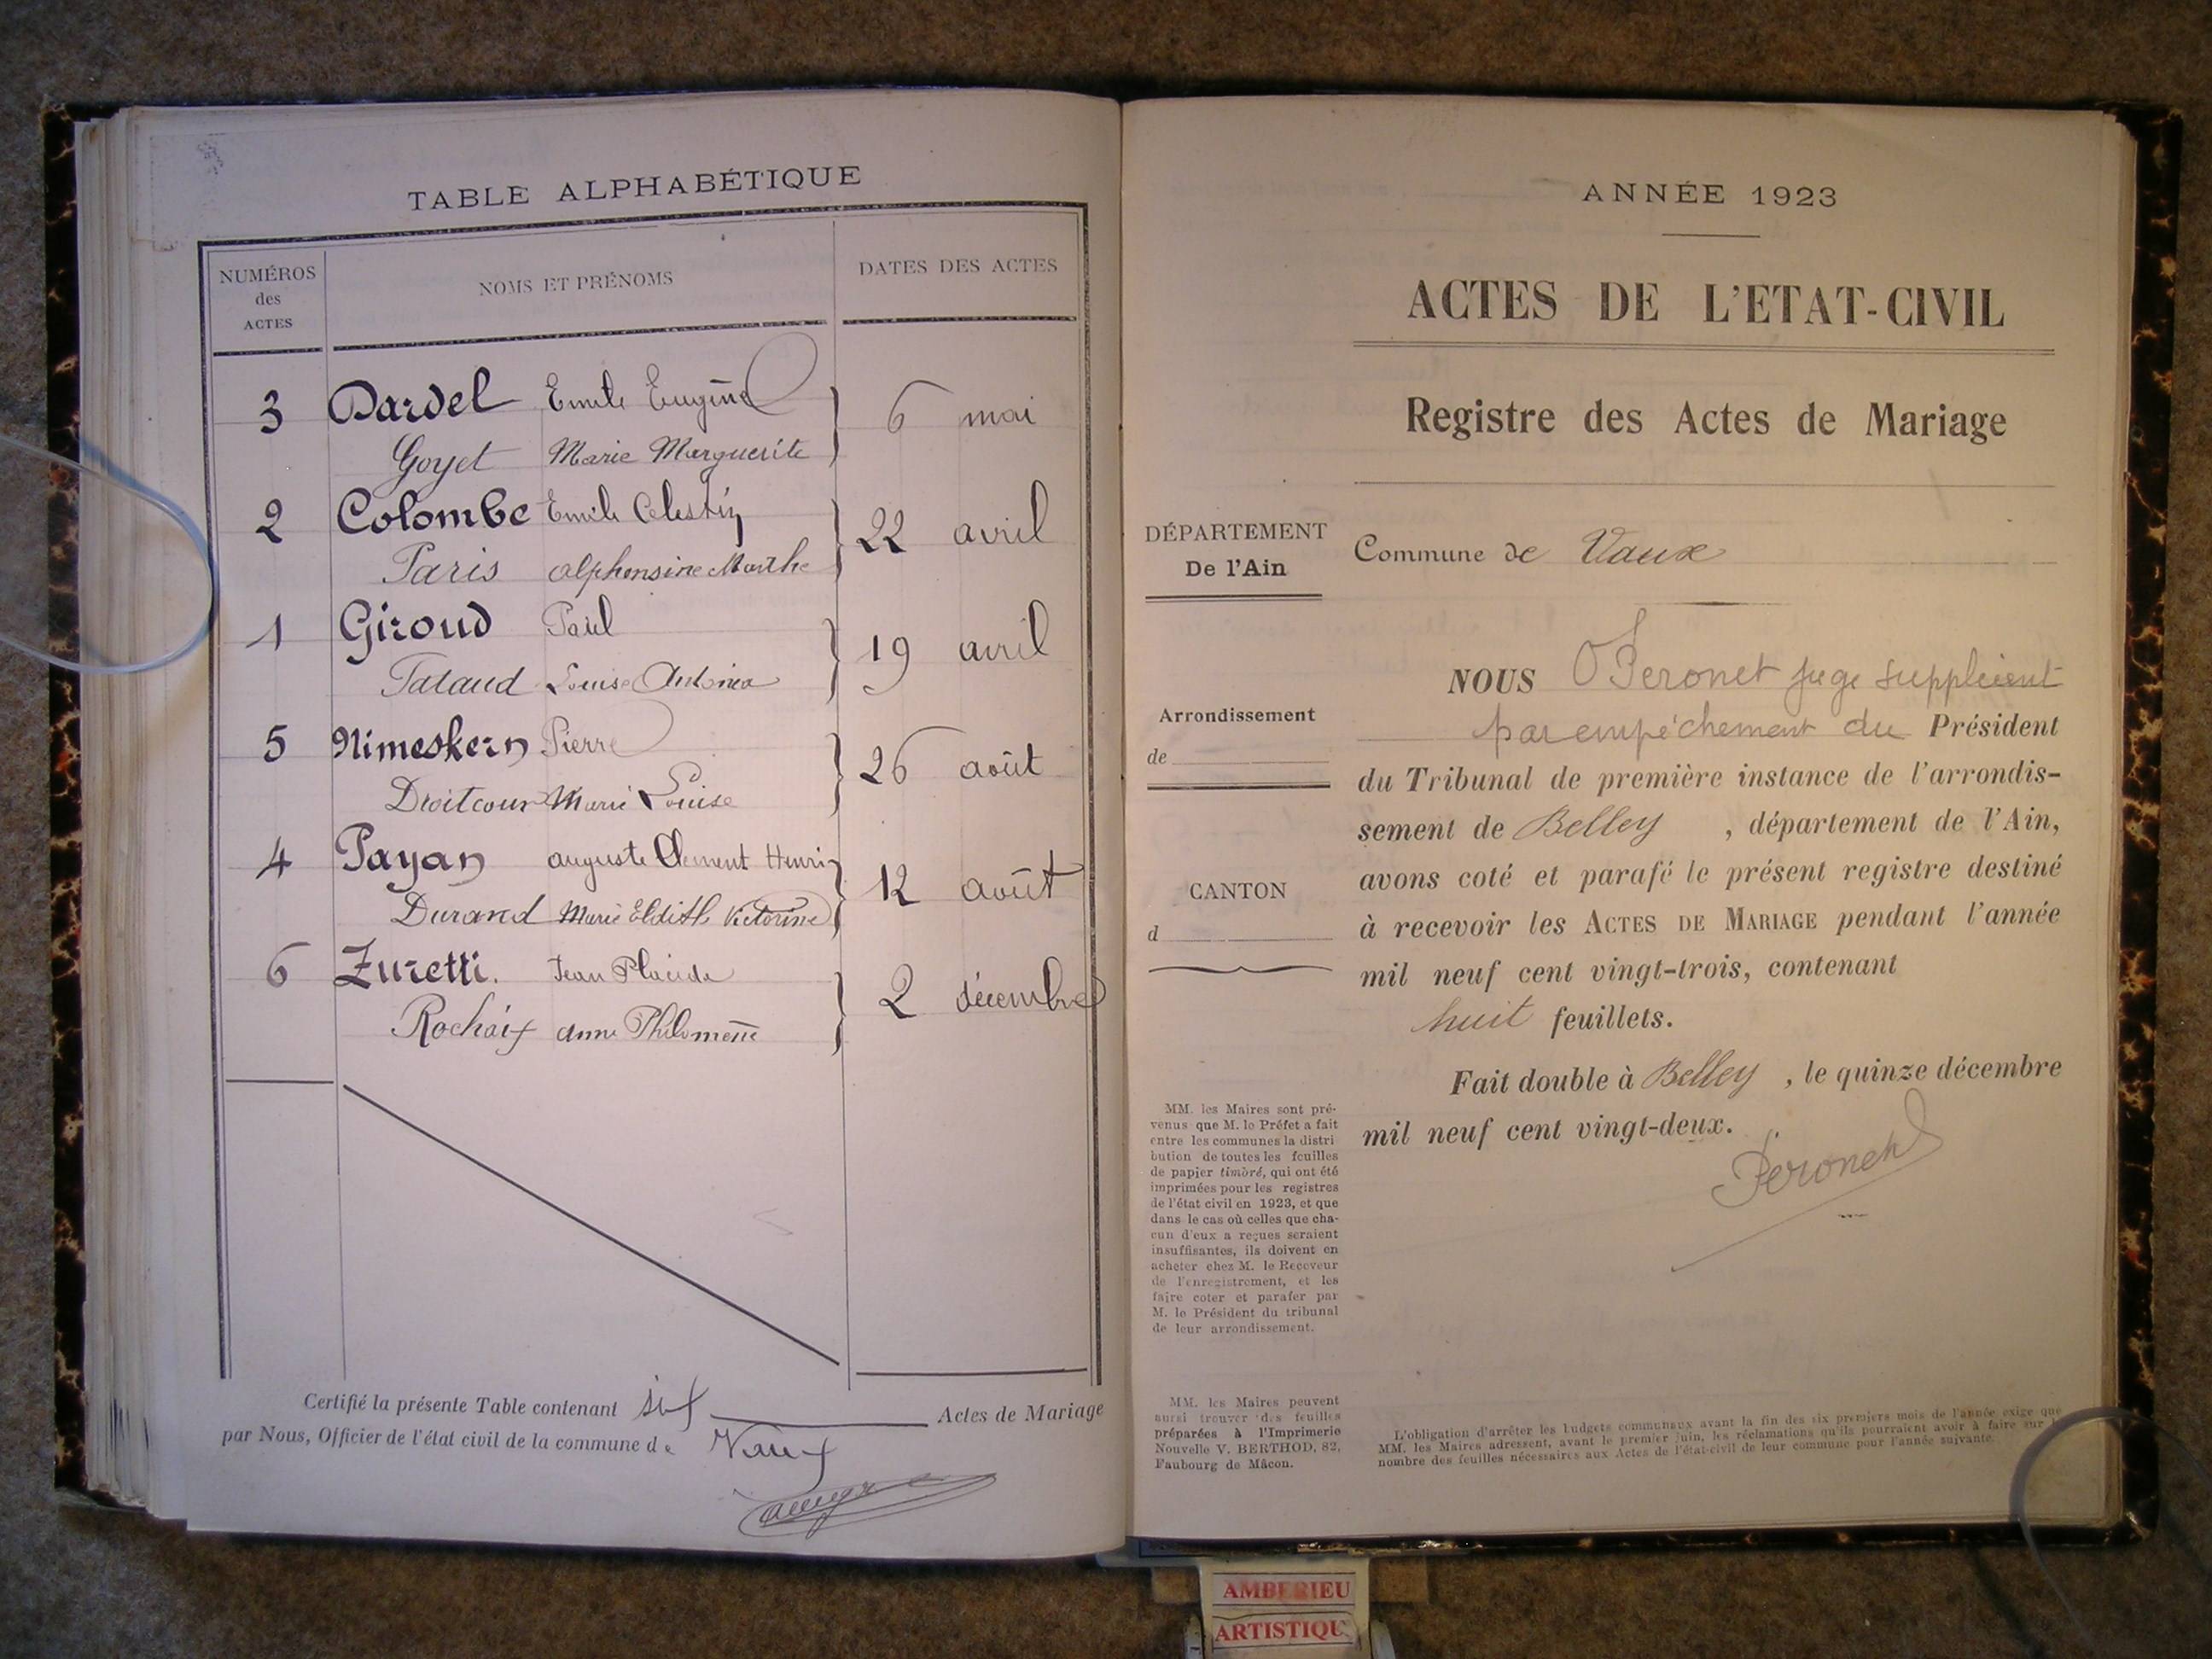 TABLE ALPHABÉTIQUE
NUMÉROS
des
ACTES
NOMS ET PRÉNOMS
DATES DES ACTES
3 Dardel Emile Eugène 6 mai
Goyet Marie Marguerite
2 Colombe Emile Celestin 22 avril
Paris alphonsine Marthe
1 Giroud Paul 19 avril
Louise Antonia
5 Nimeskern Pierre 26 août
Droitcour Marie Louise
4 Payan auguste Clement Henri 12 août
Durand Marie Eldith Victorine
6 Zuretti. Jean Placide 2 décembre
Rochaix anne Philomène
Certifié la présente Table contenant six Actes de Mariage
par Nous, Officier de l'état civil de la commune de Vaux
ANNÉE 1923
ACTES DE L'ETAT-CIVIL
Registre des Actes de Mariage
DÉPARTEMENT
De l'Ain
Commune de Vaux
Arrondissement
de
CANTON
d
NOUS O Peronet juge suppléant
par empêchement du Président
du Tribunal de première instance de l'arrondis-
sement de Belley , département de l'Ain,
avons coté et parafé le présent registre destiné
à recevoir les ACTES DE MARIAGE pendant l'année
mil neuf cent vingt-trois, contenant
huit feuillets.
Fait double à Belley , le quinze décembre
mil neuf cent vingt-deux.
Peronet
MM. les Maires sont pré-
venus que M. le Préfet a fait
entre les communes la distri
bution de toutes les feuilles
de papier timbré, qui ont été
imprimées pour les registres
de l'état civil en 1923, et que
dans le cas où celles que cha-
cun d'eux a reçues seraient
insuffisantes, ils doivent en
acheter chez M. le Receveur
de l'enregistrement, et les
faire coter et parafer par
M. le Président du tribunal
de leur arrondissement.
MM. les Maires peuvent
aussi trouver des feuilles
préparées à l'Imprimerie
Nouvelle V. BERTHOD, 82,
Faubourg de Mâcon.
L'obligation d'arrêter les budgets communaux avant la fin des six premiers mois de l'année exige que
MM. les Maires adressent, avant le premier juin, les réclamations qu'ils pourraient avoir à faire sur le
nombre des feuilles nécessaires aux Actes de l'état-civil de leur commune pour l'année suivante.
AMBERIEU
ARTISTIQU